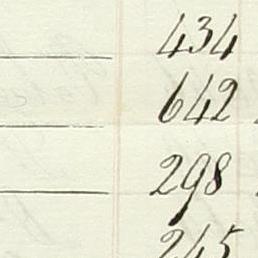 434
642
298
245